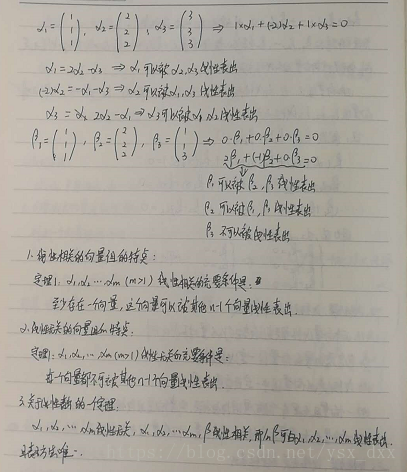 α₁ = (1 1 1), α₂ = (2 2 2), α₃ = (3 3 3) ⇒ 1×α₁ + (-2)α₂ + 1×α₃ = 0
α₁ = 2α₂ - α₃ ⇒ α₁ 可以被 α₂, α₃ 线性表出
(-2)α₂ = -α₁ - α₃ ⇒ α₂ 可以被 α₁, α₃ 线性表出
α₃ = 2α₂ - α₁ ⇒ α₃ 可以被 α₁, α₂ 线性表出
β₁ = (1 1 1), β₂ = (2 2 2), β₃ = (1 1 3) ⇒ 0·β₁ + 0·β₂ + 0·β₃ = 0
2β₁ + (-1)β₂ + 0·β₃ = 0
β₁ 可以被 β₂, β₃ 线性表出
β₂ 可以被 β₁, β₃ 线性表出
β₃ 不可以被线性表出
1. 线性相关的向量组的特点:
定理1: α₁, α₂, ⋯ αm (m>1) 线性相关的充要条件是:
至少存在一个向量, 这个向量可以被其他 n-1 个向量线性表出.
2. 线性无关的向量组的特点:
定理: α₁, α₂, ⋯ αm (m>1) 线性无关的充要条件是:
每一个向量都不可被其他 n-1 个向量线性表出
3. 关于线性表出的一个定理:
α₁, α₂, ⋯ αm 线性无关, α₁, α₂, ⋯ αm, β 线性相关, 那么 β 可由 α₁, α₂, ⋯ αm 线性表出
且表示方法唯一.
https://blog.csdn.net/ysx_dxx